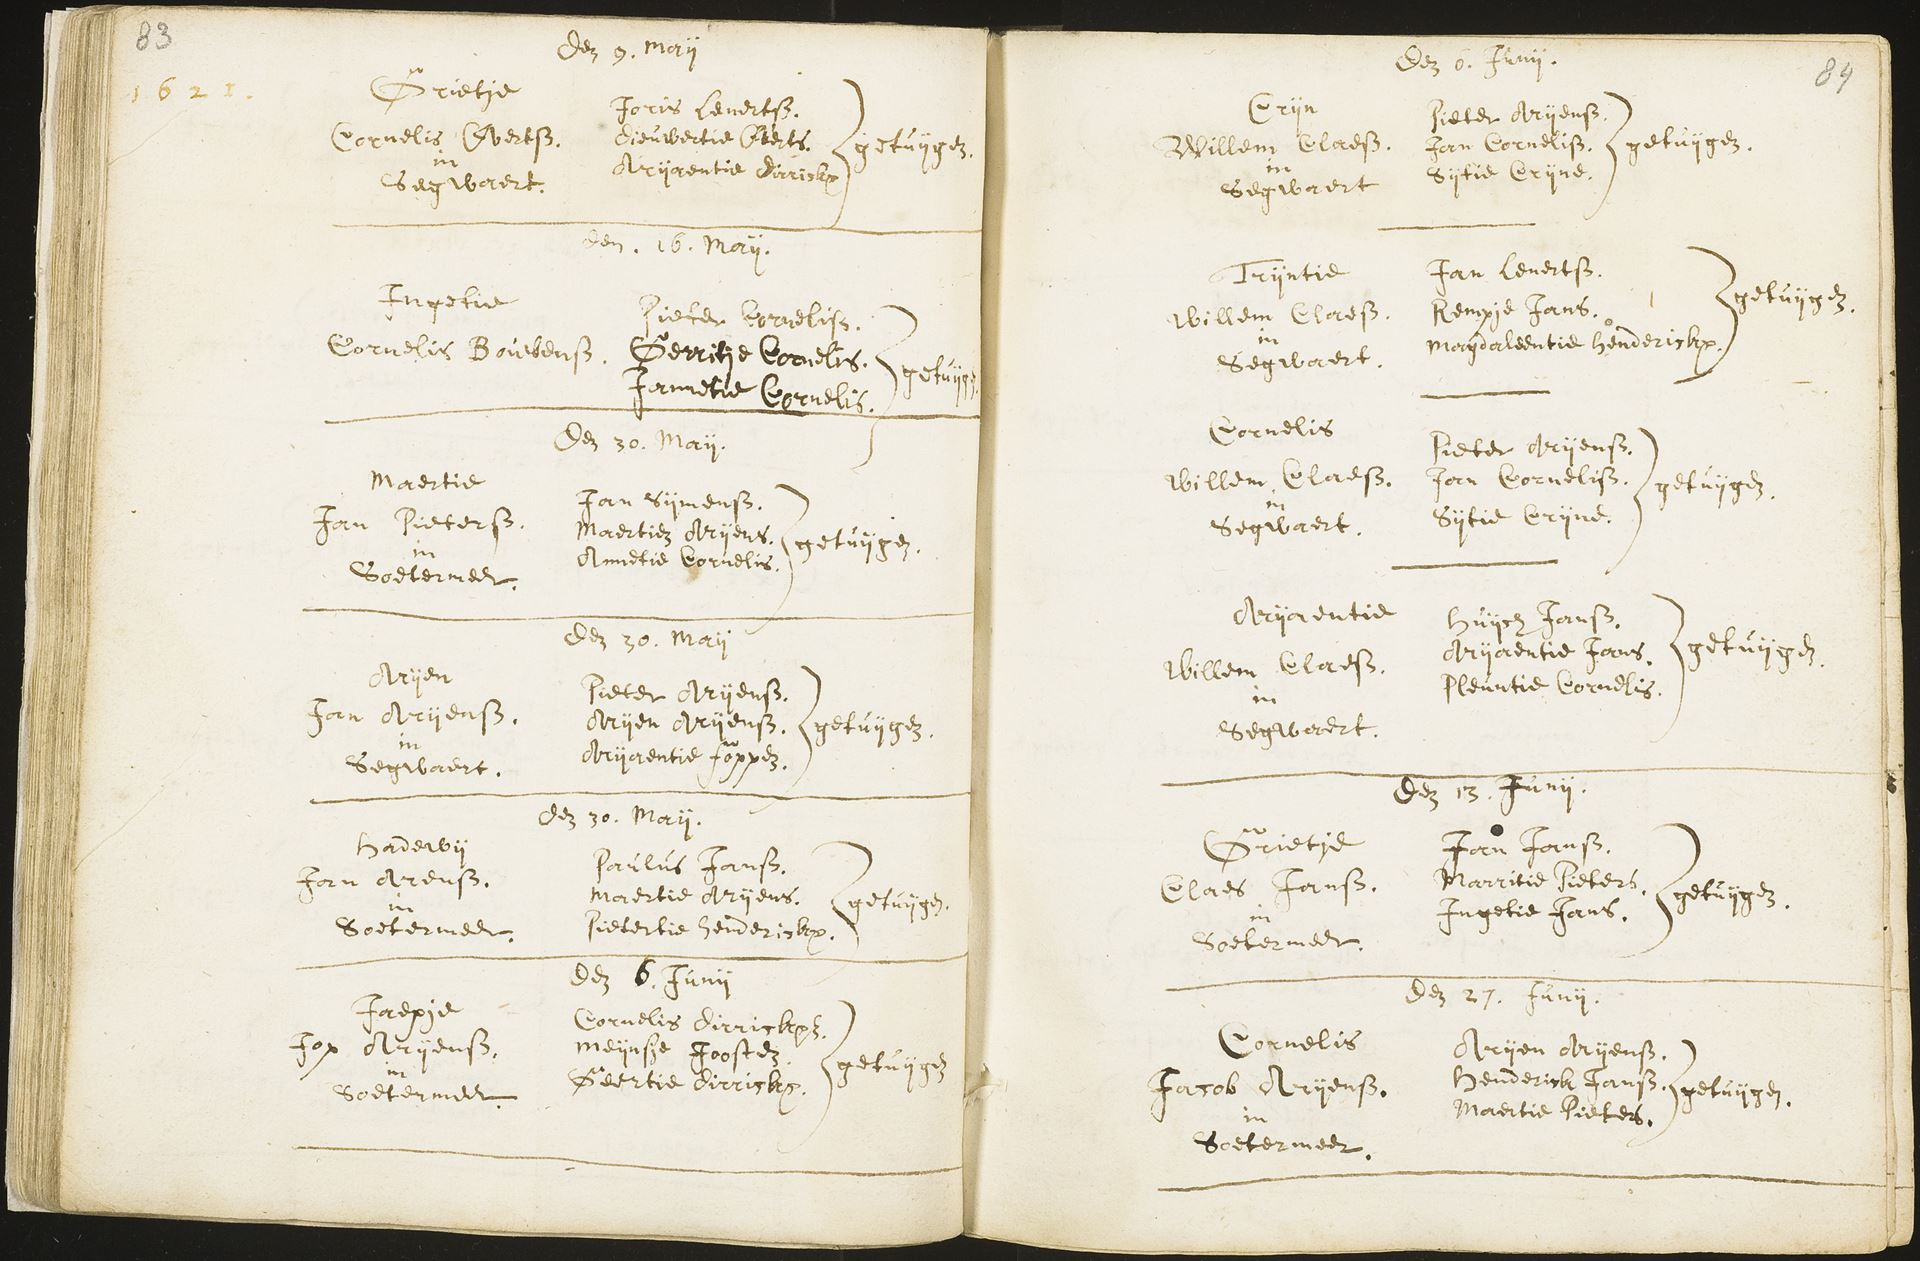 83
1621.
Den 9. Maij
Grietje
Cornelis Evertsz.
in
Segwaert.
Joris Lenertsz.
Dieuwertie Everts.
Arijaentie Dirricks
getuijgen.
den. 16. Maij.
Ingetie
Cornelis Bouwensz.
Pieter Cornelisz.
Gerritje Cornelis.
Jannetie Cornelis.
getuijgen.
Den 30. Maij.
Maertie
Jan Pietersz.
in
Soetermeer.
Jan Sijmensz.
Maertien Arijens.
Annetie Cornelis.
getuijgen.
Den 30. Maij
Arijen
Jan Arijensz.
in
Segwaert.
Pieter Arijensz.
Arijen Arijensz.
Arijaentie foppen.
getuijgen.
Den 30. Maij.
Hadewij
Jan Arensz.
in
Soetermeer.
Paulus Jansz.
Maertie Arijens.
Pietertie Hendericks.
getuijgen.
Den 6. Junij
Jaepje
Jop Arijensz.
in
Soetermeer.
Cornelis Dirricksz.
Meijnsje Joosten.
Geertie Dirricks.
getuijgen
84
Den 6. Junij.
Crijn
Willem Claesz.
in
Segwaert
Pieter Arijensz.
Jan Cornelisz.
Sijtie Crijne.
getuijgen.
Trijntie
Willem Claesz.
in
Segwaert.
Jan Lenertsz.
Kempje Jans.
Magdaleentie Hendericks.
getuijgen.
Cornelis
Willem Claesz.
in
Segwaert.
Pieter Arijensz.
Jan Cornelisz.
Sijtie Crijne.
getuijgen.
Arijaentie
Willem Claesz.
in
Segwaert.
Huijch Jansz.
Arijaentie Jans.
Pleuntie Cornelis.
getuijgen.
Den 13. Junij.
Grietje
Claes Jansz.
in
Soetermeer.
Jan Jansz.
Marritie Pieters.
Ingetie Jans.
getuijgen.
Den 27. Junij.
Cornelis
Jacob Arijensz.
in
Soetermeer.
Arijen Arijensz.
Henderick Jansz.
Maertie Pieters.
getuijgen.